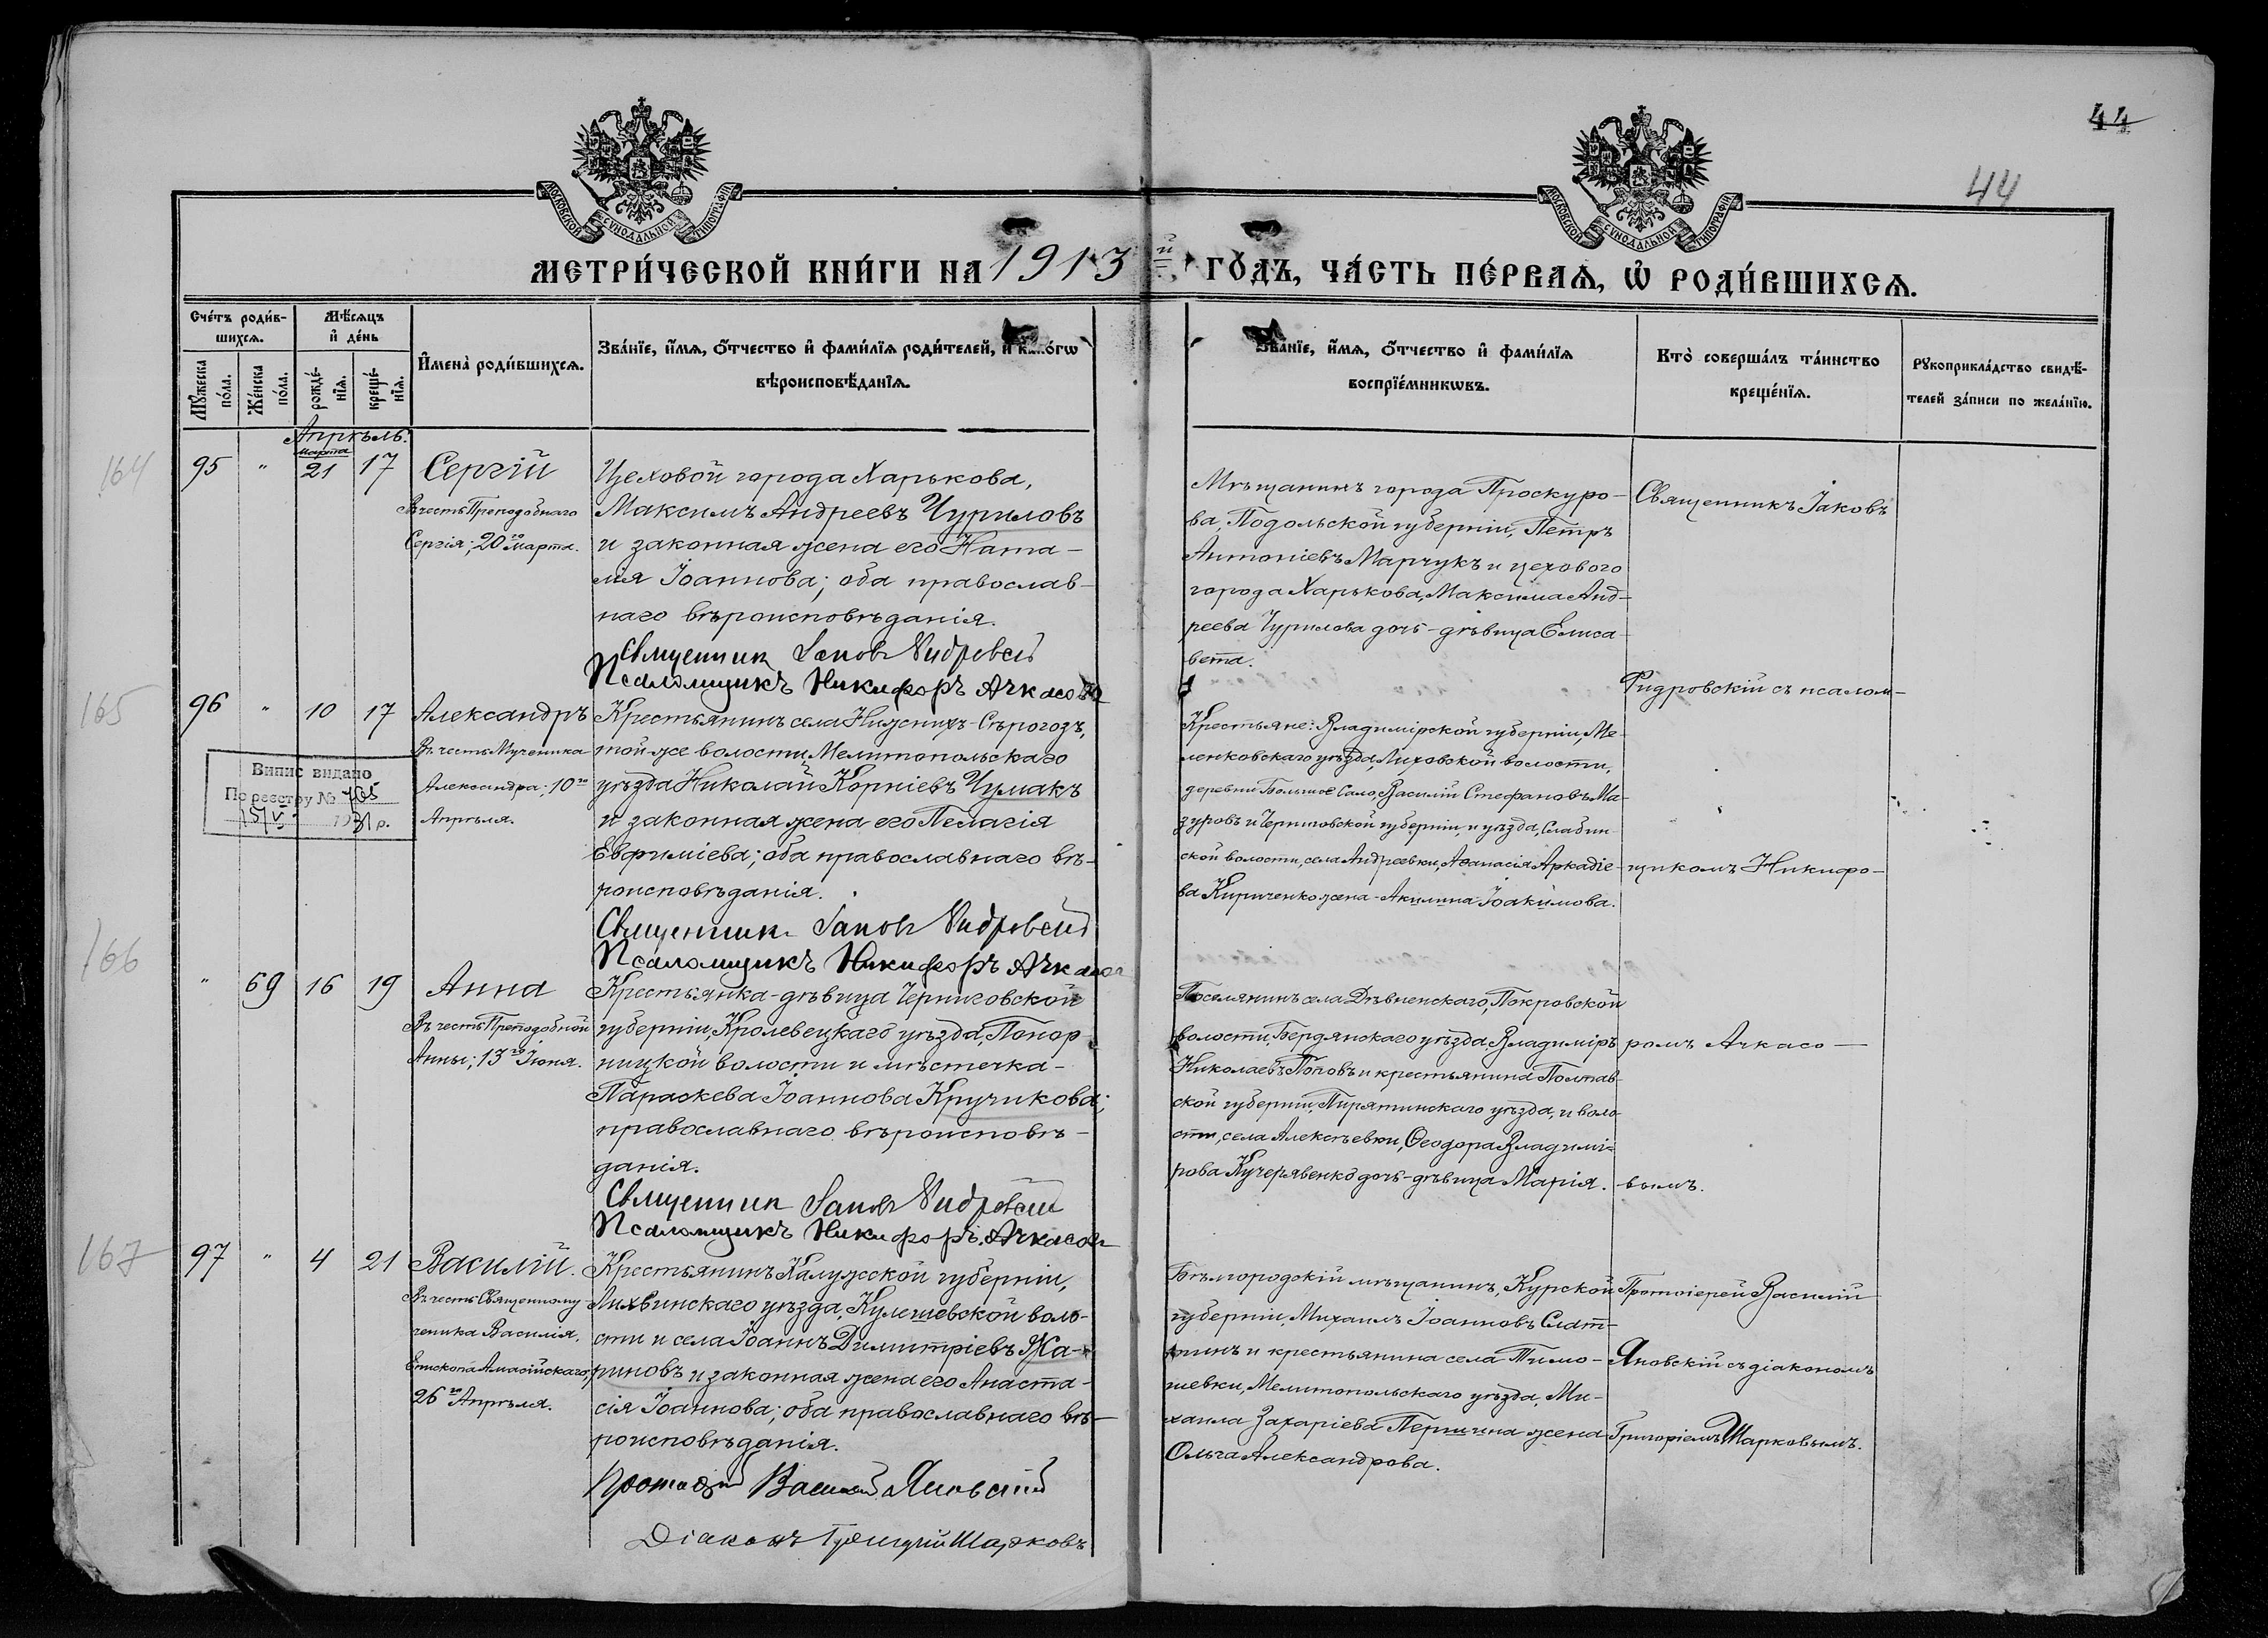 44
44
МОСКОВСКОЙ СѴНОДАЛЬНОЙ ТИПОГРАФІИ
МОСКОВСКОЙ СѴНОДАЛЬНОЙ ТИПОГРАФІИ
МЕТРИ́ЧЕСКОЙ КНИ́ГИ НА 1913й ГО́ДЪ, ЧА́СТЬ ПЕ́РВАѦ, Ѡ РОДИ́ВШИХСѦ.
Сче́тъ роди́в-
шихсѧ.
Мѣ́сѧцъ
и҆ де́нь
Мꙋ́жеска
по́ла.
Же́нска
по́ла.
рожде́-
нїѧ.
креще́-
нїѧ.
И҆мена̀ роди́вшихсѧ.
Зва́нїе, и҆́мѧ, о҆́тчество и҆ фами́лїѧ роди́телей, и҆ како́гѡ
вѣроисповѣ́данїѧ.
Зва́нїе, и҆́мѧ, о҆́тчество и҆ фами́лїѧ
воспрїе́мникѡвъ.
Кто̀ соверша́лъ та́инство
креще́нїѧ.
Рꙋкоприкла́дство свидѣ́-
телей за́писи по жела́нїю.
Апрѣль.
марта
164
95 " 21 17 Сергій
Въ честь Преподобнаго
Сергія; 20го марта.
Цеховой города Харькова,
Максимъ Андреевъ Чуриловъ
и законная жена его Ната-
лія Іоаннова; оба православ-
наго вѣроисповѣданія.
Священник Іаков Фидровскій
Псаломщикъ Никифоръ Ачкасовъ
Мѣщанинъ города Проскуро-
ва, Подольской губерніи, Петръ
Антоніевъ Марчукъ и цехового
города Харькова, Максима Анд-
реева Чурилова дочь-дѣвица Елиса-
вета.
Священникъ Іаковъ
Фидровскій съ псалом-
165
96 " 10 17 Александръ
Въ честь Мученика
Александра; 10го
Апрѣля.
Випис видано
По реєстру № 765
15/V 1931 р.
Крестьянинъ села Нижнихъ-Сѣрогозъ,
той-же волости, Мелитопольскаго
уѣзда Николай Корніевъ Чумакъ
и законная жена его Пелагія
Евфиміева; оба православнаго вѣ-
роисповѣданія.
Священник Іаков Фидровскій
Псаломщикъ Никифоръ Ачкасов
Крестьяне: Владимірской губерніи, Ме-
ленковскаго уѣзда, Ляховской волости,
деревни Большое Сало, Василій Стефановъ Ма-
зуровъ и Черниговской губерніи, и уѣзда, Слабин-
ской волости, села Андреевки, Аѳанасія Аркадіе-
ва Кириченко жена-Акилина Іоакимова.
щикомъ Никифо-
166
" 69 16 19 Анна
Въ честь Преподобной
Анны; 13го Іюня.
Крестьянка-дѣвица Черниговской
губерніи, Кролевецкаго уѣзда, Понор-
ницкой волости и мѣстечка-
Параскева Іоаннова Кручикова;
православнаго вѣроисповѣ-
данія.
Священник Іаков Фидровскій
Псаломщикъ Никифоръ Ачкасов
Поселянинъ села Дѣвненскаго, Покровской
волости, Бердянскаго уѣзда, Владиміръ
Николаевъ Поповъ и крестьянина Полтав-
ской губерніи, Пирятинскаго уѣзда, и воло-
сти, села Алексѣевки, Ѳеодора Владимі-
рова Кучерявенко дочь-дѣвица Марія.
ромъ Ачкасо-
вымъ.
167
97 " 4 21 Василій.
Въ честь Священному-
ченика Василія,
Епископа Амасійскаго;
26го Апрѣля.
Крестьянинъ Калужской губерніи,
Лихвинскаго уѣзда, Кулешевской воло-
сти и села Іоаннъ Димитріевъ Жа-
риновъ и законная жена его Анаста-
сія Іоаннова; оба православнаго вѣ-
роисповѣданія.
Протоіерей Василій Яновскій
Діаконъ Григорій Шарковъ
Бѣлгородскій мѣщанинъ, Курской
губерніи, Михаилъ Іоанновъ Слат-
нинъ и крестьянина села Тимо-
шевки, Мелитопольскаго уѣзда, Ми-
хаила Захаріева Першина жена
Ольга Александрова.
Протоіерей Василій
Яновскій съ діакономъ
Григоріемъ Шарковымъ.